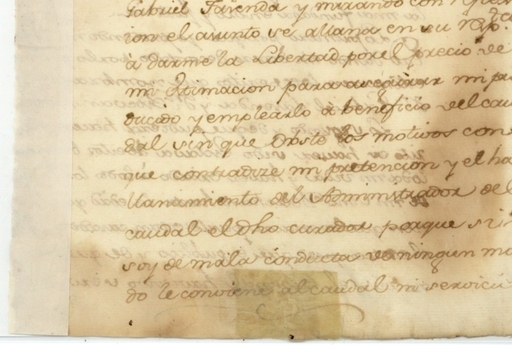 Gabriel Fajenda y mirando con
ion el asunto se allana en su resp.
á darme la Libertad por el precio de
mi Estimacion para asegurar mi pro
ducido y emplearlo á beneficio del cau
dal sin que Obste los motivos con
que contradize mi pretencion y el ha
llanamiento del Administrador del
caudal el dho curador, porque si
soy de mala conducta de ningun mo
do le conviene al caudal mi servici